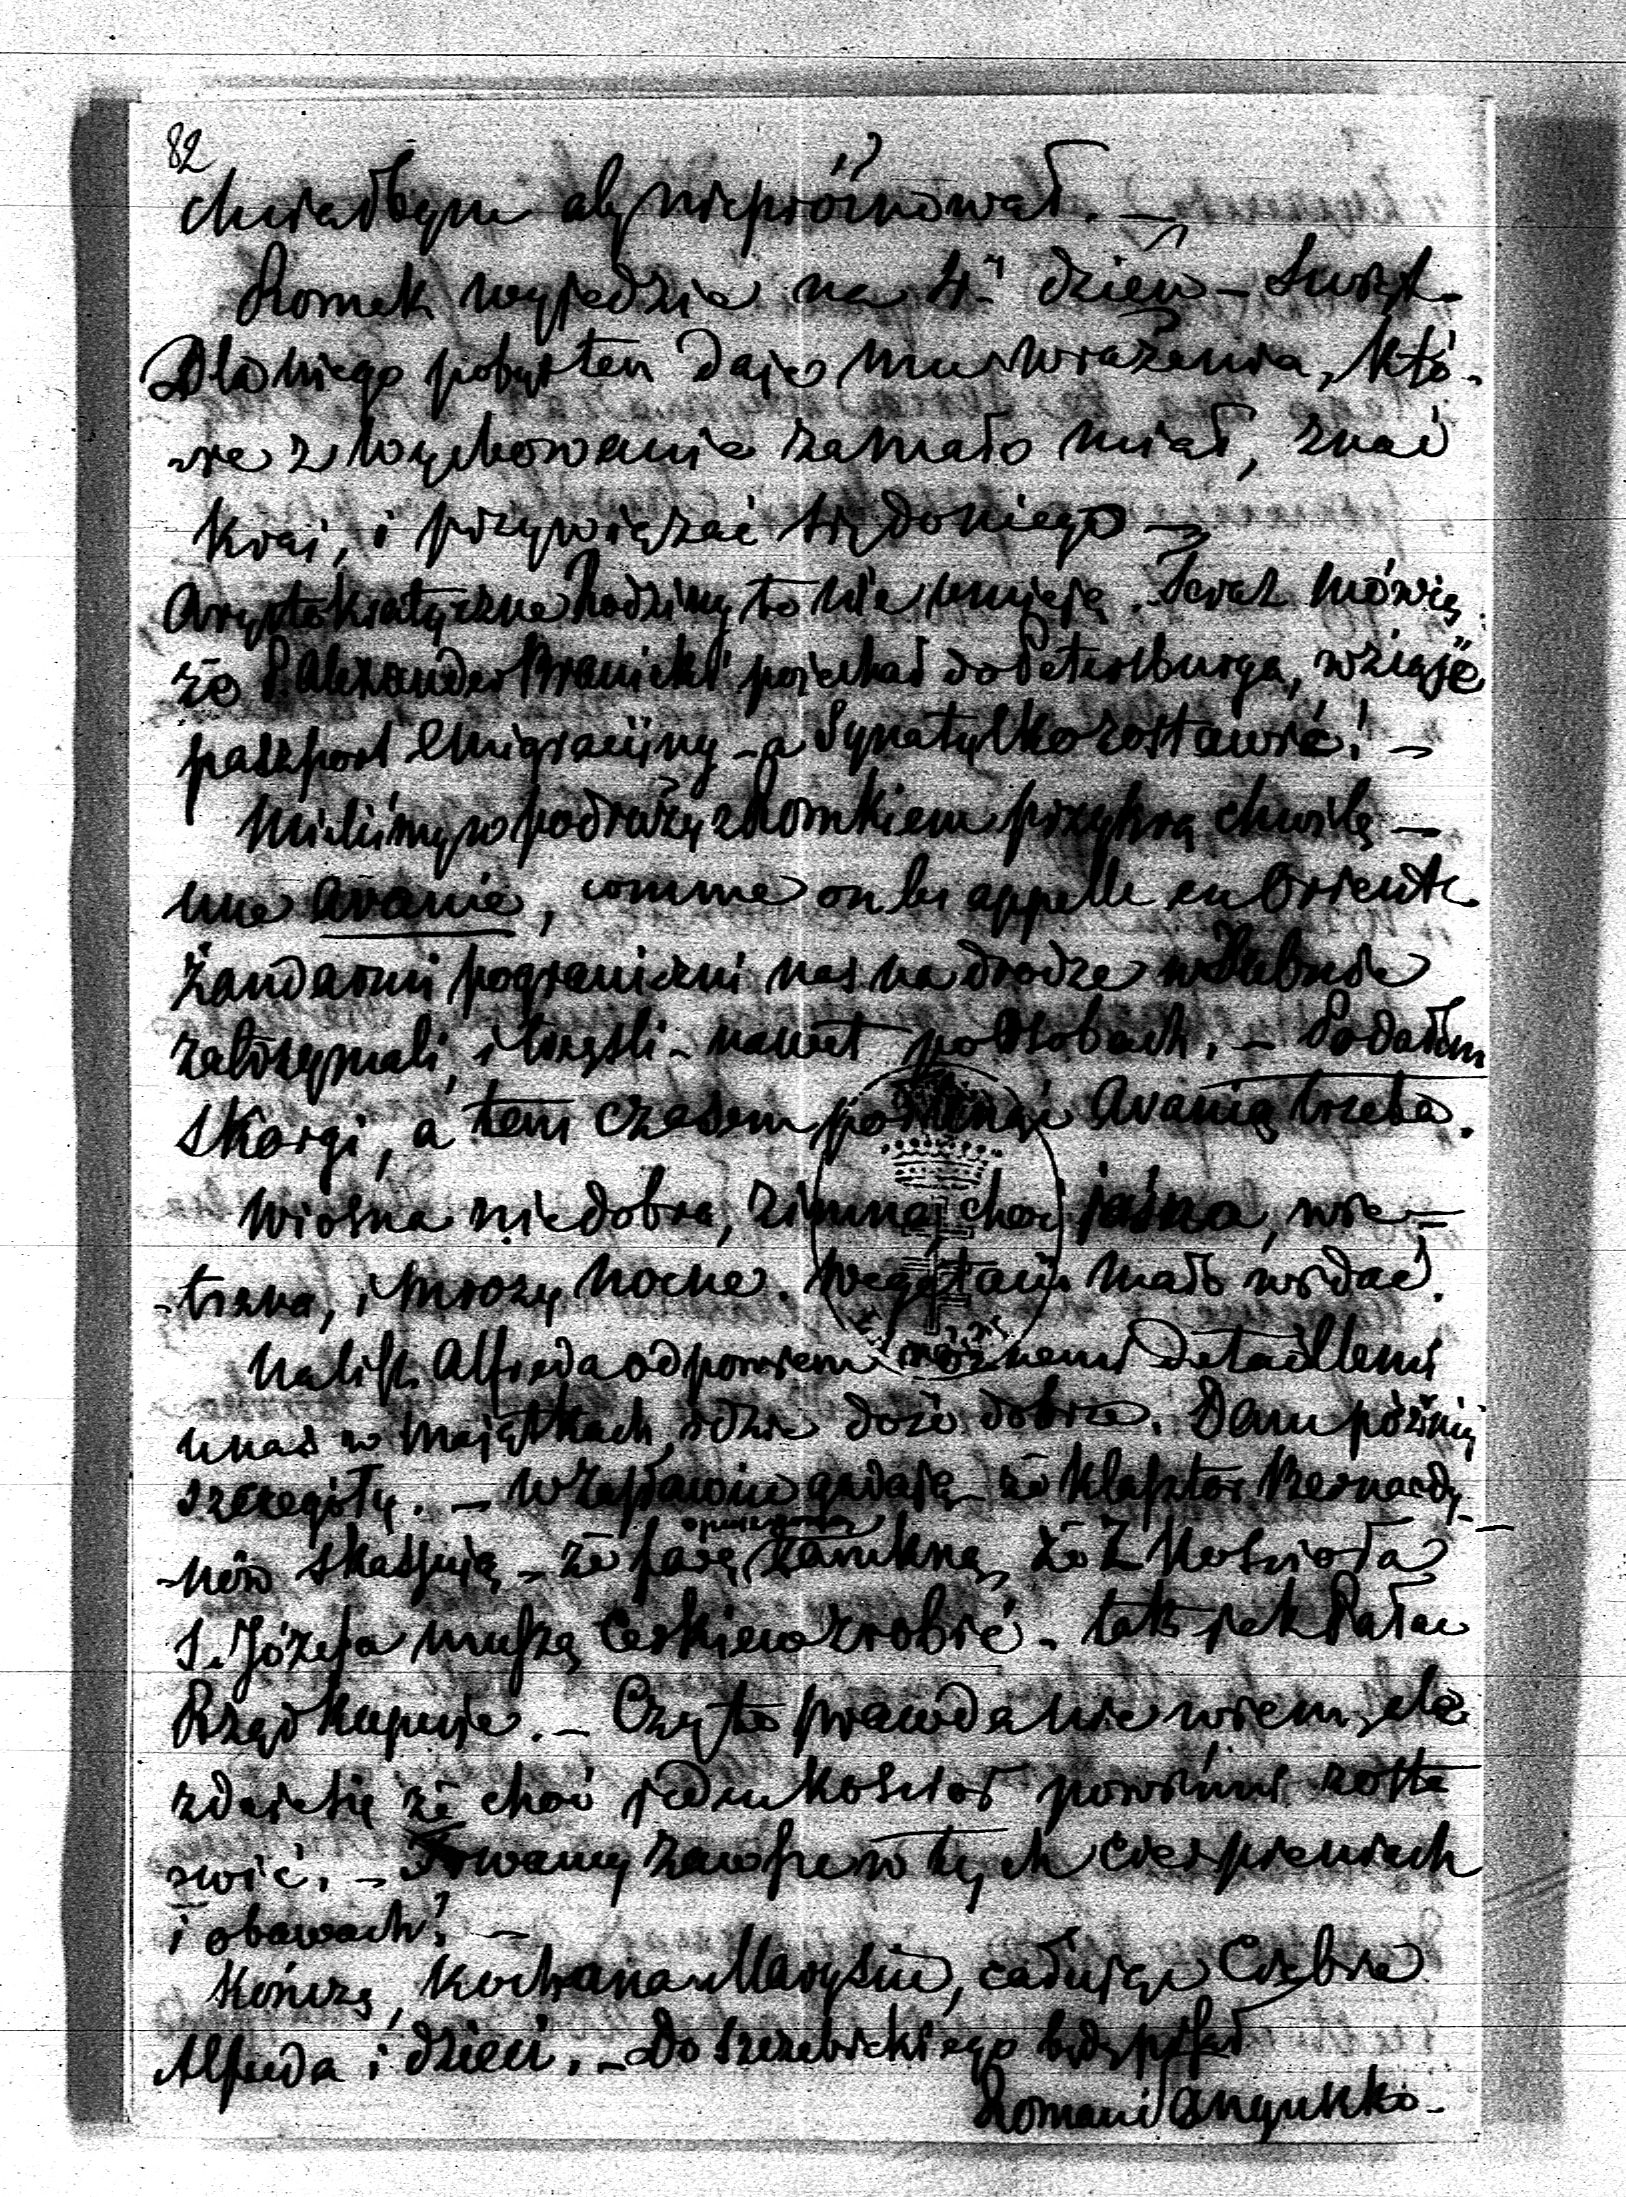 82
chciałbym aby niepróżnował. —
Romek wyjedzie na 4.ty dzień – Świąt.
Dla niego pobyt ten daje mu wrażenia, któ-
-re z wychowania zamało miał, znać
kraj, i przywiązać się do niego —
Arystokratyczne Rodziny to nie umieją. Teraz mówią
że P. Alexander Branicki pojechał do Petersburga, wziąść
paszport Emigracijny – a Syna tylko zostawić! —
Mieliśmy w podróży z Romkiem przykrą chwilę —
une avanie, comme on les appelle en Orient.
Żandarmi pograniczni nas na drodze w Dubnie
zatrzymali, i trzęśli – nawet po Osobach. – Podałem
skargi, a tem czasem połknąć Avanię trzeba.
Wiosna niedobra, zimna, choć jasna, wie-
-trzna, i mrozy nocne. Wegetacji mało widać.
Na list Alfreda odpowiem różnemi detaillemi
u nas w majątkach idzie dość dobrze. Dam późnij
szczegóły. – w Zasławiu gadają – że klasztor Bernardy-
-nów skassują – że farę zamkną, że z Kościoła
S. Józefa muszą Cerkiew zrobić – tak jak Pałac
Rząd kupuje. – Czy to prawda nie wiem, ale
zdaje się że choć jeden kościoł powinni zosta-
-wić. – Trwamy zawsze w tych cierpieniach
i obawach! —
Kończę, kochana Marysiu, całując Ciebie
Alfreda i dzieci. – Do Szczebickiego będę pisał
Roman Sanguszko –